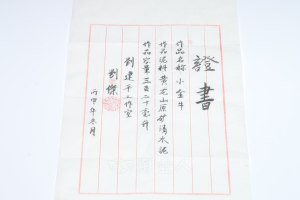 證書
作品名稱 小金牛
作品泥料 黃龙山原矿清水泥
作品容量 三百二十毫升
劉建平工作室
劉傑
丙申年冬月